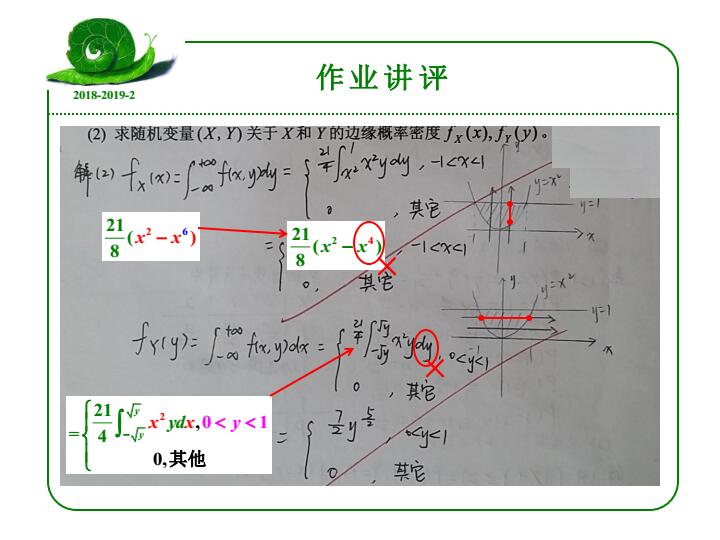 作业讲评
2018-2019-2
(2) 求随机变量 (X, Y) 关于 X 和 Y 的边缘概率密度 f_X(x), f_Y(y)。
解(2) f_X(x) = ∫_{-∞}^{+∞} f(x,y)dy = { 21/4 ∫_{x²}^{1} x²y dy , -1<x<1
0 , 其它
21/8 (x² − x⁶)
= { 21/8 (x² − x⁴) , -1<x<1
0, 其它
y
y=x²
y=1
-1 1 x
y
y=x²
y=1
-1 1 x
f_Y(y) = ∫_{-∞}^{+∞} f(x,y)dx = { 21/4 ∫_{-√y}^{√y} x²y dy , 0<y<1
0 , 其它
= { 21/4 ∫_{-√y}^{√y} x² y dx, 0 < y < 1
0, 其他
= { 7/2 y^{5/2} , 0<y<1
0 , 其它